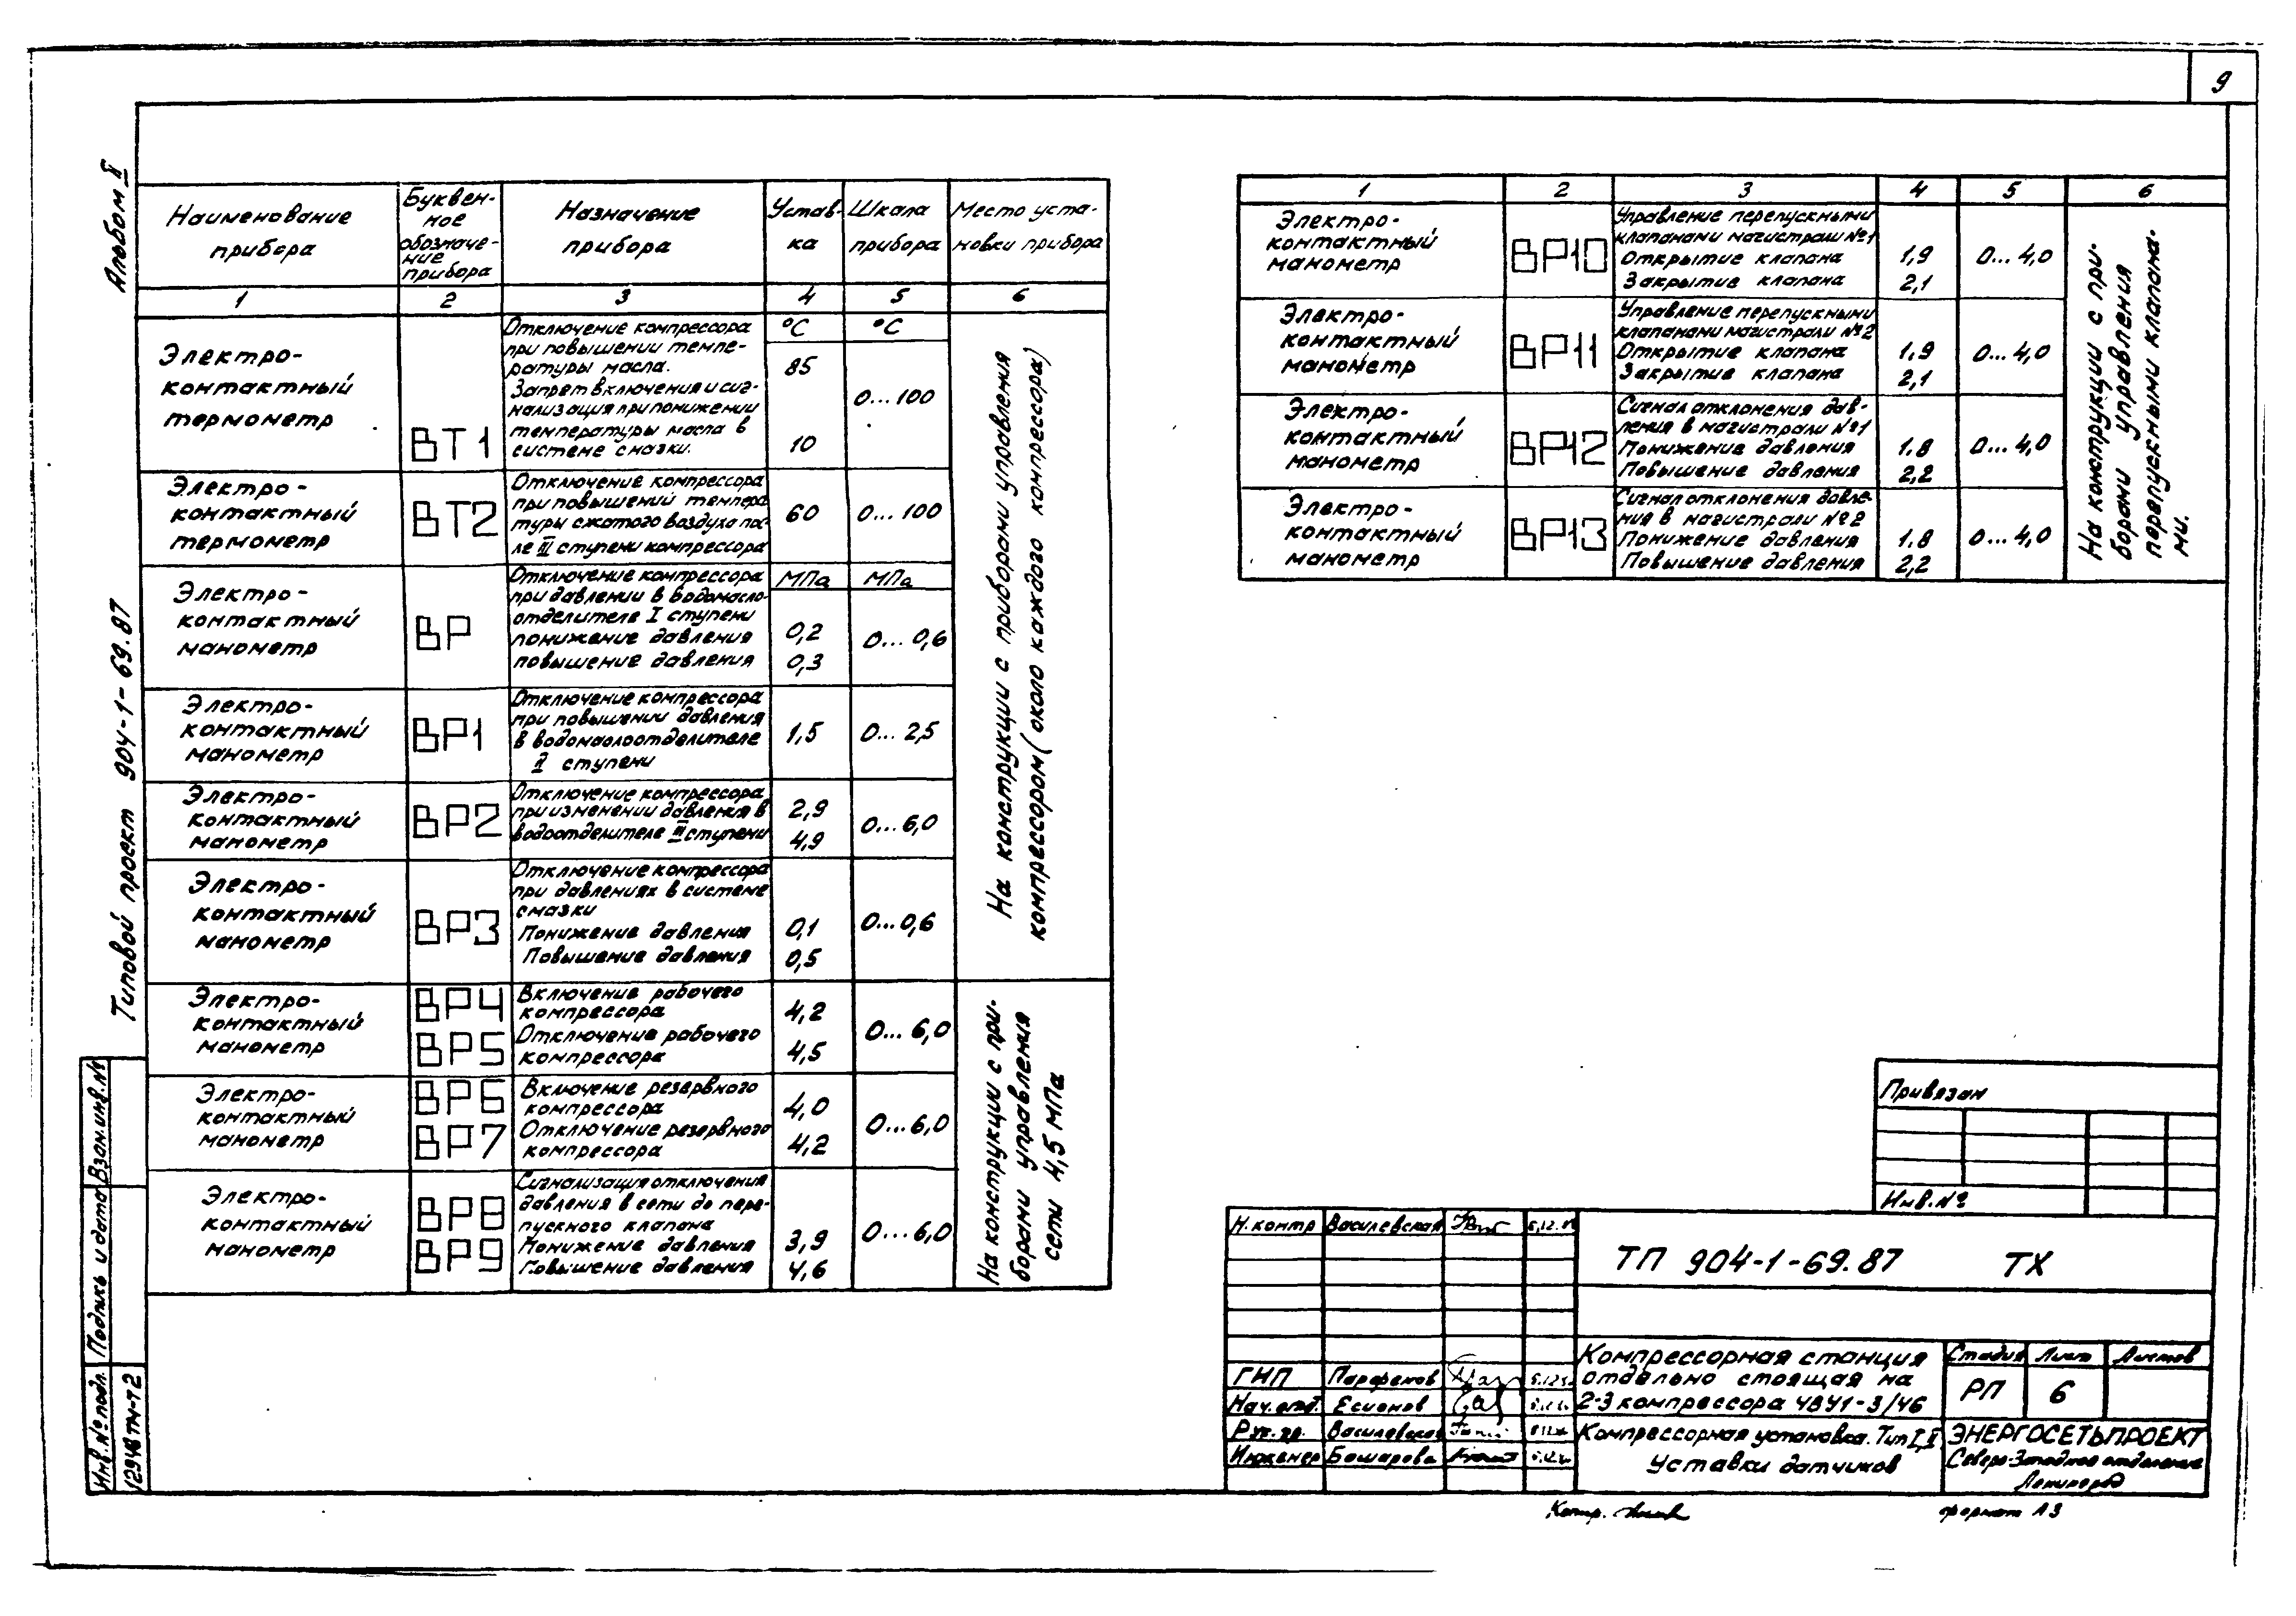 9
Альбом II
Типовой проект 904-1-69.87
Наименование
прибора
Буквен-
ное
обозначе-
ние
прибора
Назначение
прибора
Устав-
ка
Шкала
прибора
Место уста-
новки прибора
1 2 3 4 5 6
Электро-
контактный
термометр
ВТ1
Отключение компрессора
при повышении темпе-
ратуры масла.
Запрет включения и сиг-
нализация при понижении
температуры масла в
системе смазки.
°С
85
10
°С
0...100
Электро-
контактный
термометр
ВТ2
Отключение компрессора
при повышений темпера
туры сжатого воздуха пос-
ле III ступени компрессора
60
0...100
Электро-
контактный
манометр
ВР
Отключение компрессора
при давлении в водомасло-
отделителе I ступени
понижение давления
повышение давления
МПа
0,2
0,3
МПа
0...0,6
Электро-
контактный
манометр
ВР1
Отключение компрессора
при повышении давления
в водомаслоотделителе
II ступени
1,5
0...2,5
Электро-
контактный
манометр
ВР2
Отключение компрессора
при изменении давления в
водоотделителе III ступени
2,9
4,9
0...6,0
Электро-
контактный
манометр
ВР3
Отключение компрессора
при давлениях в системе
смазки
Понижение давления
Повышение давления
0,1
0,5
0...0,6
На конструкции с приборами управления
компрессором (около каждого компрессора)
Электро-
контактный
манометр
ВР4
ВР5
Включение рабочего
компрессора
Отключение рабочего
компрессора
4,2
4,5
0...6,0
Электро-
контактный
манометр
ВР6
ВР7
Включение резервного
компрессора
Отключение резервного
компрессора
4,0
4,2
0...6,0
Электро-
контактный
манометр
ВР8
ВР9
Сигнализация отключения
давления в сети до пере-
пускного клапана
Понижение давления
Повышение давления
3,9
4,6
0...6,0
На конструкции с при-
борами управления
сети 4,5 МПа
1 2 3 4 5 6
Электро-
контактный
манометр
ВР10
Управление перепускными
клапанами магистрали №1
Открытие клапана
Закрытие клапана
1,9
2,1
0...4,0
Электро-
контактный
манометр
ВР11
Управление перепускными
клапанами магистрали №2
Открытие клапана
Закрытие клапана
1,9
2,1
0...4,0
Электро-
контактный
манометр
ВР12
Сигнал отклонения дав-
ления в магистрали №1
Понижение давления
Повышение давления
1.8
2,2
0...4,0
Электро-
контактный
манометр
ВР13
Сигнал отклонения давле-
ния в магистрали №2
Понижение давления
Повышение давления
1.8
2,2
0...4,0
На конструкции с при-
борами управления
перепускными клапана-
ми.
Привязан
Инв.№
Н.контр Василевская
ГНП Парфенов
Нач.отд. Есионов
Рук.гр. Василевская
Инженер Башарова
ТП 904-1-69.87 ТХ
Компрессорная станция
отдельно стоящая на
2-3 компрессора 4ВУ1-3/46
Стадия Лист Листов
РП 6
Компрессорная установка. Тип I, II
Уставки датчиков
ЭНЕРГОСЕТЬПРОЕКТ
Северо-Западное отделение
Ленинград
Копир.
формат А3
Взам.инв.№
Подпись и дата
Инв.№подл.
12948тм-т2